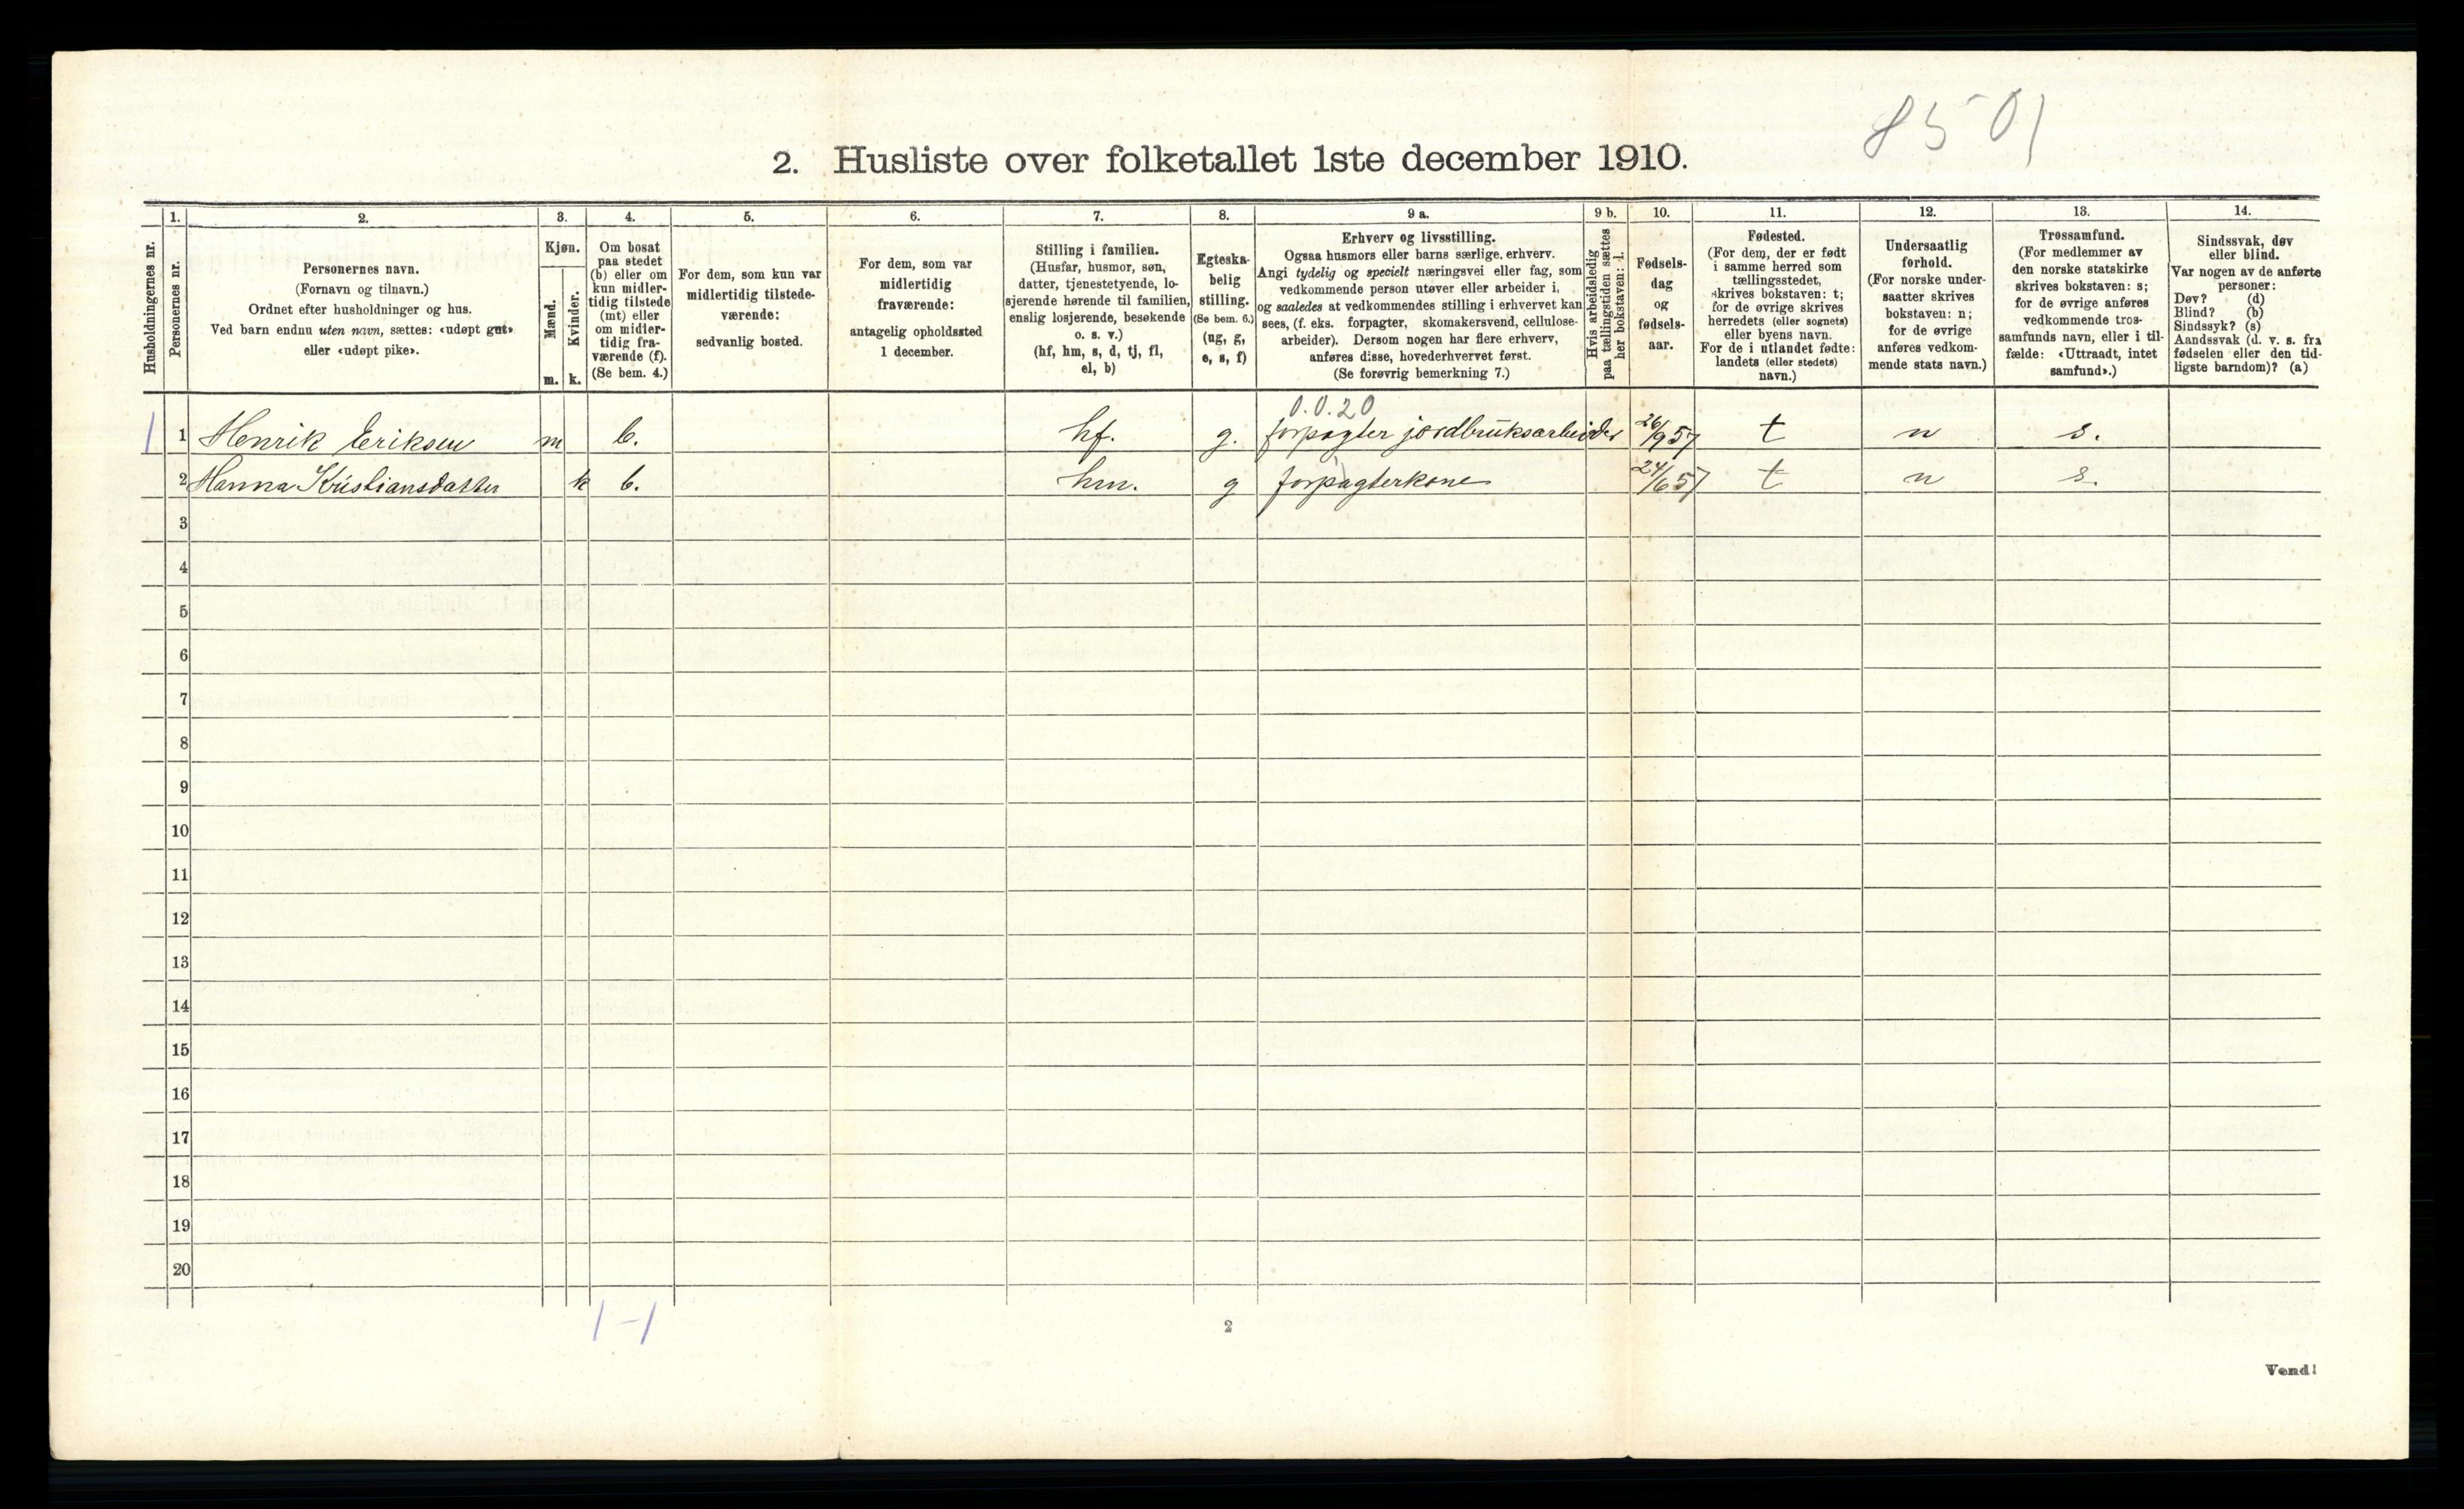 8501
2. Husliste over folketallet 1ste december 1910.
1. 2. 3. 4. 5. 6. 7. 8. 9 a. 9 b. 10. 11. 12. 13. 14.
Husholdningernes nr.
Personernes nr.
Personernes navn.
(Fornavn og tilnavn.)
Ordnet efter husholdninger og hus.
Ved barn endnu uten navn, sættes: «udøpt gut»
eller «udøpt pike».
Kjøn.
Mænd.
Kvinder.
m. k.
Om bosat
paa stedet
(b) eller om
kun midler-
tidig tilstede
(mt) eller
om midler-
tidig fra-
værende (f).
(Se bem. 4.)
For dem, som kun var
midlertidig tilstede-
værende:
sedvanlig bosted.
For dem, som var
midlertidig
fraværende:
antagelig opholdssted
1 december.
Stilling i familien.
(Husfar, husmor, søn,
datter, tjenestetyende, lo-
sjerende hørende til familien,
enslig losjerende, besøkende
o. s. v.)
(hf, hm, s, d, tj, fl,
el, b)
Egteska-
belig
stilling.
(Se bem. 6.)
(ug, g,
e, s, f)
Erhverv og livsstilling.
Ogsaa husmors eller barns særlige erhverv.
Angi tydelig og specielt næringsvei eller fag, som
vedkommende person utøver eller arbeider i,
og saaledes at vedkommendes stilling i erhvervet kan
sees, (f. eks. forpagter, skomakersvend, cellulose-
arbeider). Dersom nogen har flere erhverv,
anføres disse, hovederhvervet først.
(Se forøvrig bemerkning 7.)
Hvis arbeidsledig
paa tællingstiden sættes
her bokstaven: l.
Fødsels-
dag
og
fødsels-
aar.
Fødested.
(For dem, der er født
i samme herred som
tællingsstedet,
skrives bokstaven: t;
for de øvrige skrives
herredets (eller sognets)
eller byens navn.
For de i utlandet fødte:
landets (eller stedets)
navn.)
Undersaatlig
forhold.
(For norske under-
saatter skrives
bokstaven: n;
for de øvrige
anføres vedkom-
mende stats navn.)
Trossamfund.
(For medlemmer av
den norske statskirke
skrives bokstaven: s;
for de øvrige anføres
vedkommende tros-
samfunds navn, eller i til-
fælde: «Uttraadt, intet
samfund».)
Sindssvak, døv
eller blind.
Var nogen av de anførte
personer:
Døv? (d)
Blind? (b)
Sindssyk? (s)
Aandssvak (d. v. s. fra
fødselen eller den tid-
ligste barndom)? (a)
0.0.20
1 1 Henrik Eriksen m b. hf. g. forpagter jordbruksarbeider 26/9 57 t n s.
2 Hanna Kristiansdatter k b. hm. g forpagterkone 24/6 57 t n s.
3
4
5
6
7
8
9
10
11
12
13
14
15
16
17
18
19
20
1-1
2
Vend!